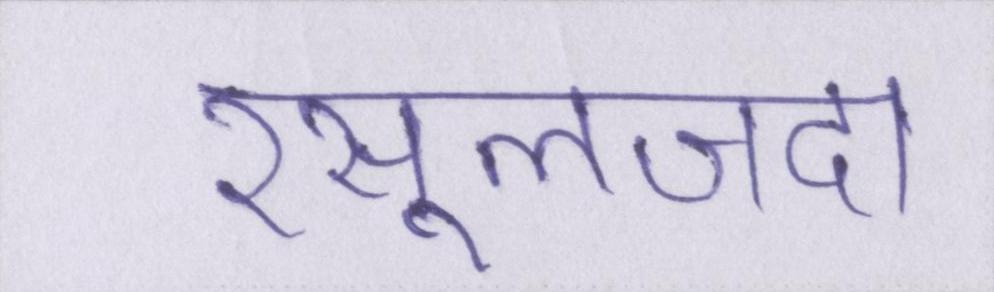 रसूलजदा